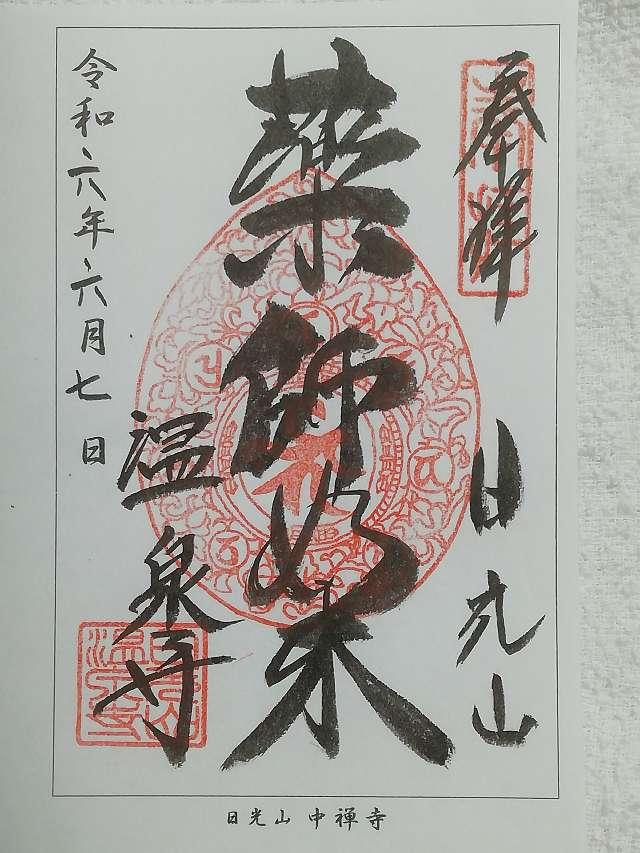 奉拝
日光山
薬師如来
温泉寺
令和六年六月七日
日光山 中禅寺